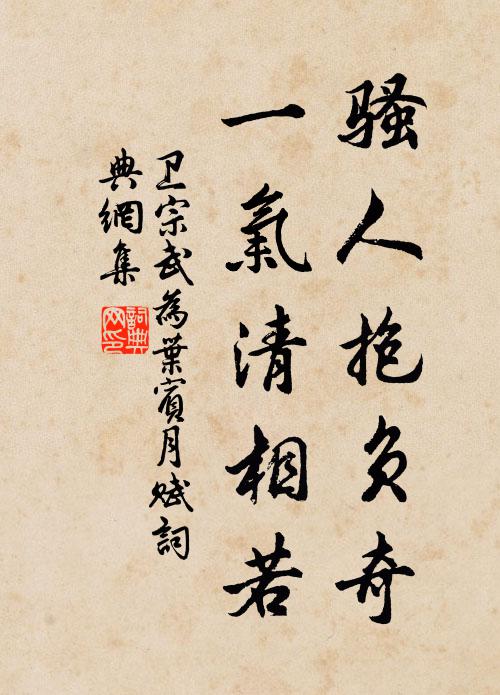 骚人抱负奇
一氣清相若
卫宗武為葉賓月賦詞
典網集
詞典
网印